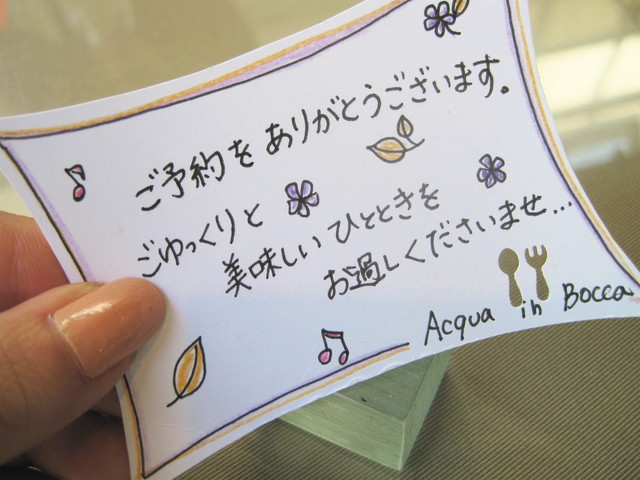 ご予約を ありがとうございます。
ごゆっくりと
美味しい ひとときを
お過しくださいませ...
Acqua in Bocca